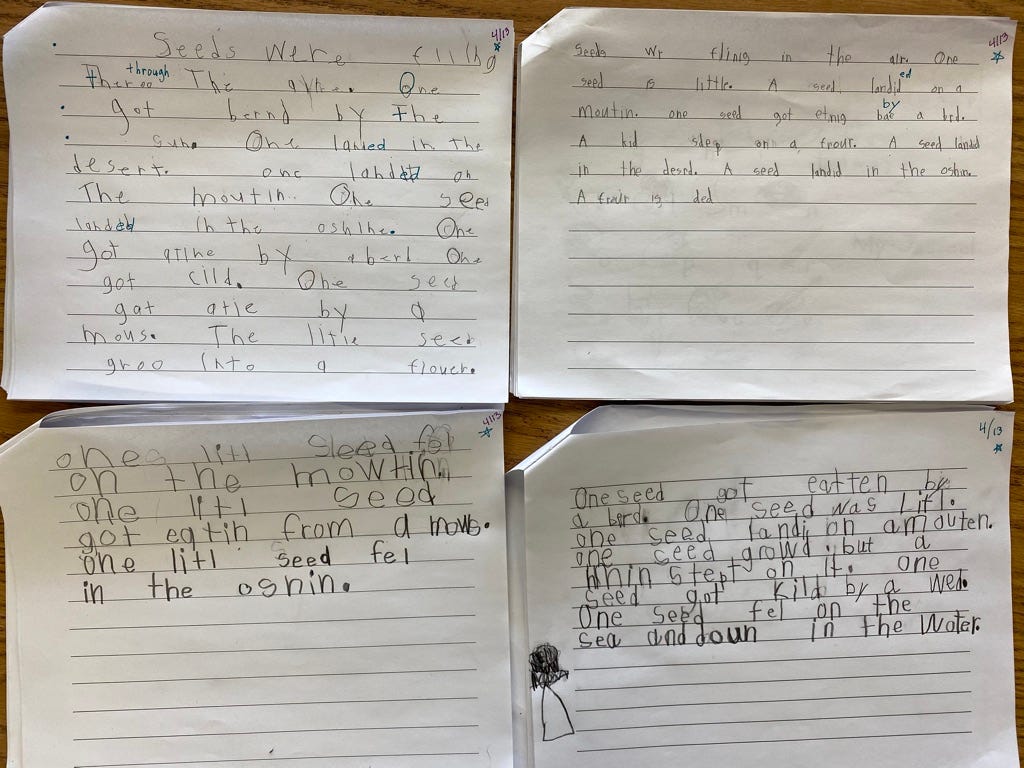 4/13
Seeds were fling
through The
One
got bernd by The
sun. One landed in the
desert. one landed on
The moutin. One seed
landed in the oshine. One
got by a berd One
got cild. One seed
gat atie by a
mous. The litle seed
groo into a flower.
4/13
Seeds Wr flinig in the air. One
seed is little. A seed landided on a
moutin. one seed got etnig by a brd.
A kid step on a frour. A seed landid
in the desrd. A seed landid in the oshin.
A frour is ded
4/13
one litl seed fel
on the mowtin.
one litl seed
got eatin from a mows.
one litl seed fel
in the oshin.
4/13
One seed got eatten by
a berd. One seed was litl.
one seed landi on a mouten.
one seed growd but a
stept on it. one
seed got kild by a Wed.
One seed fel on the
sea and doun in the Water.